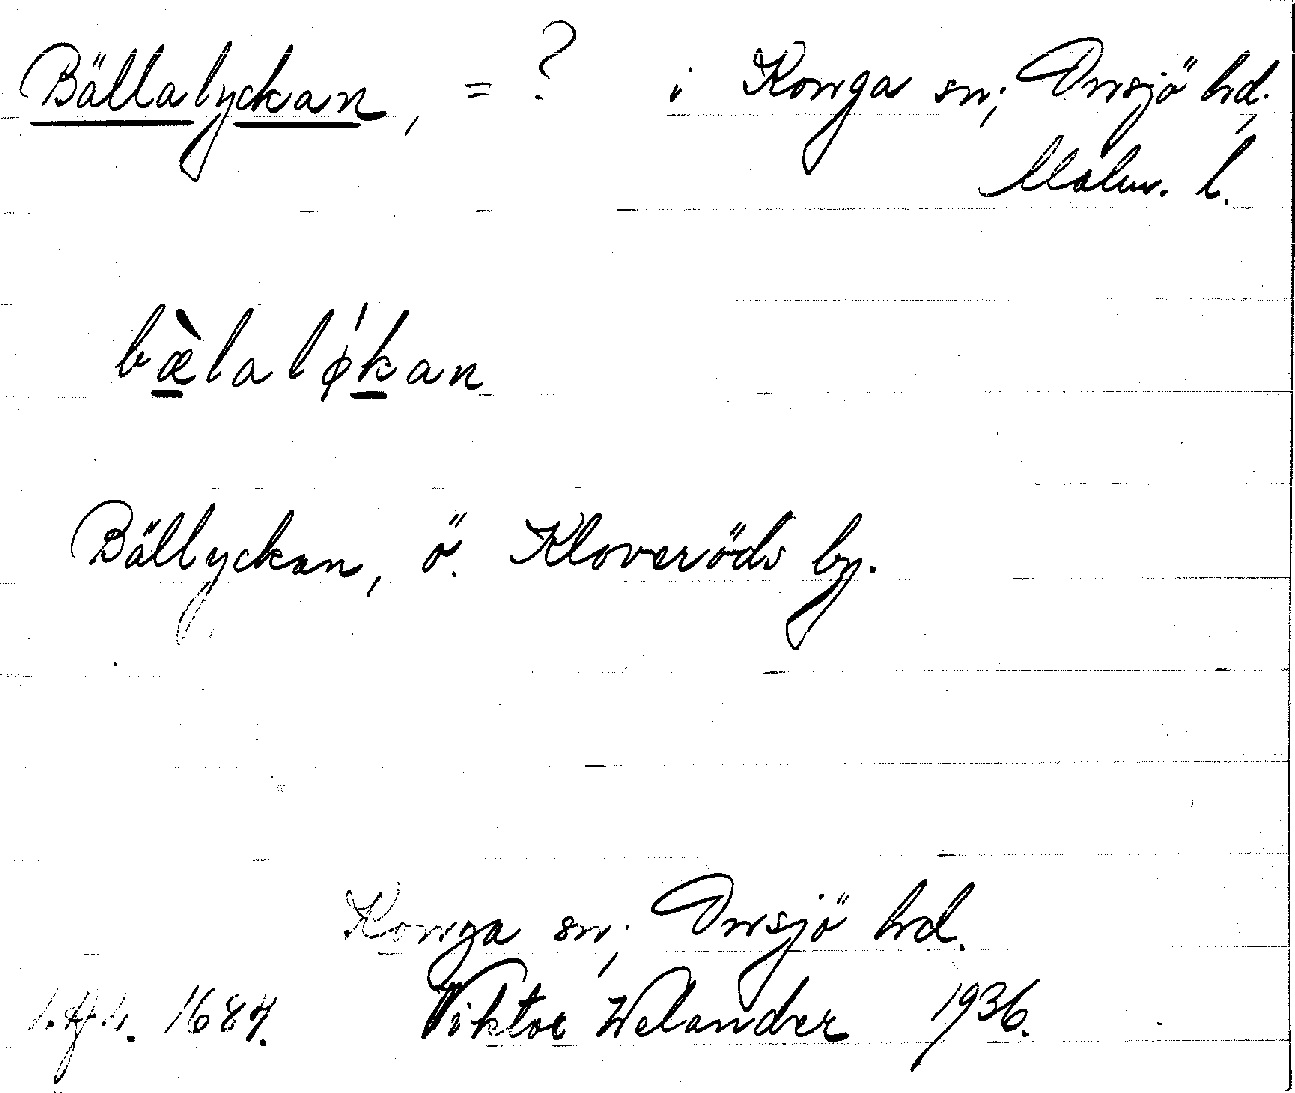 Bällalyckan, = ? i Konga sn; Onsjö hd,
Malm. l.
bæ̀lalǿkan
Bällyckan, ö. Kloveröds by.
Konga sn; Onsjö hd.
1684. Viktor Welander 1936.